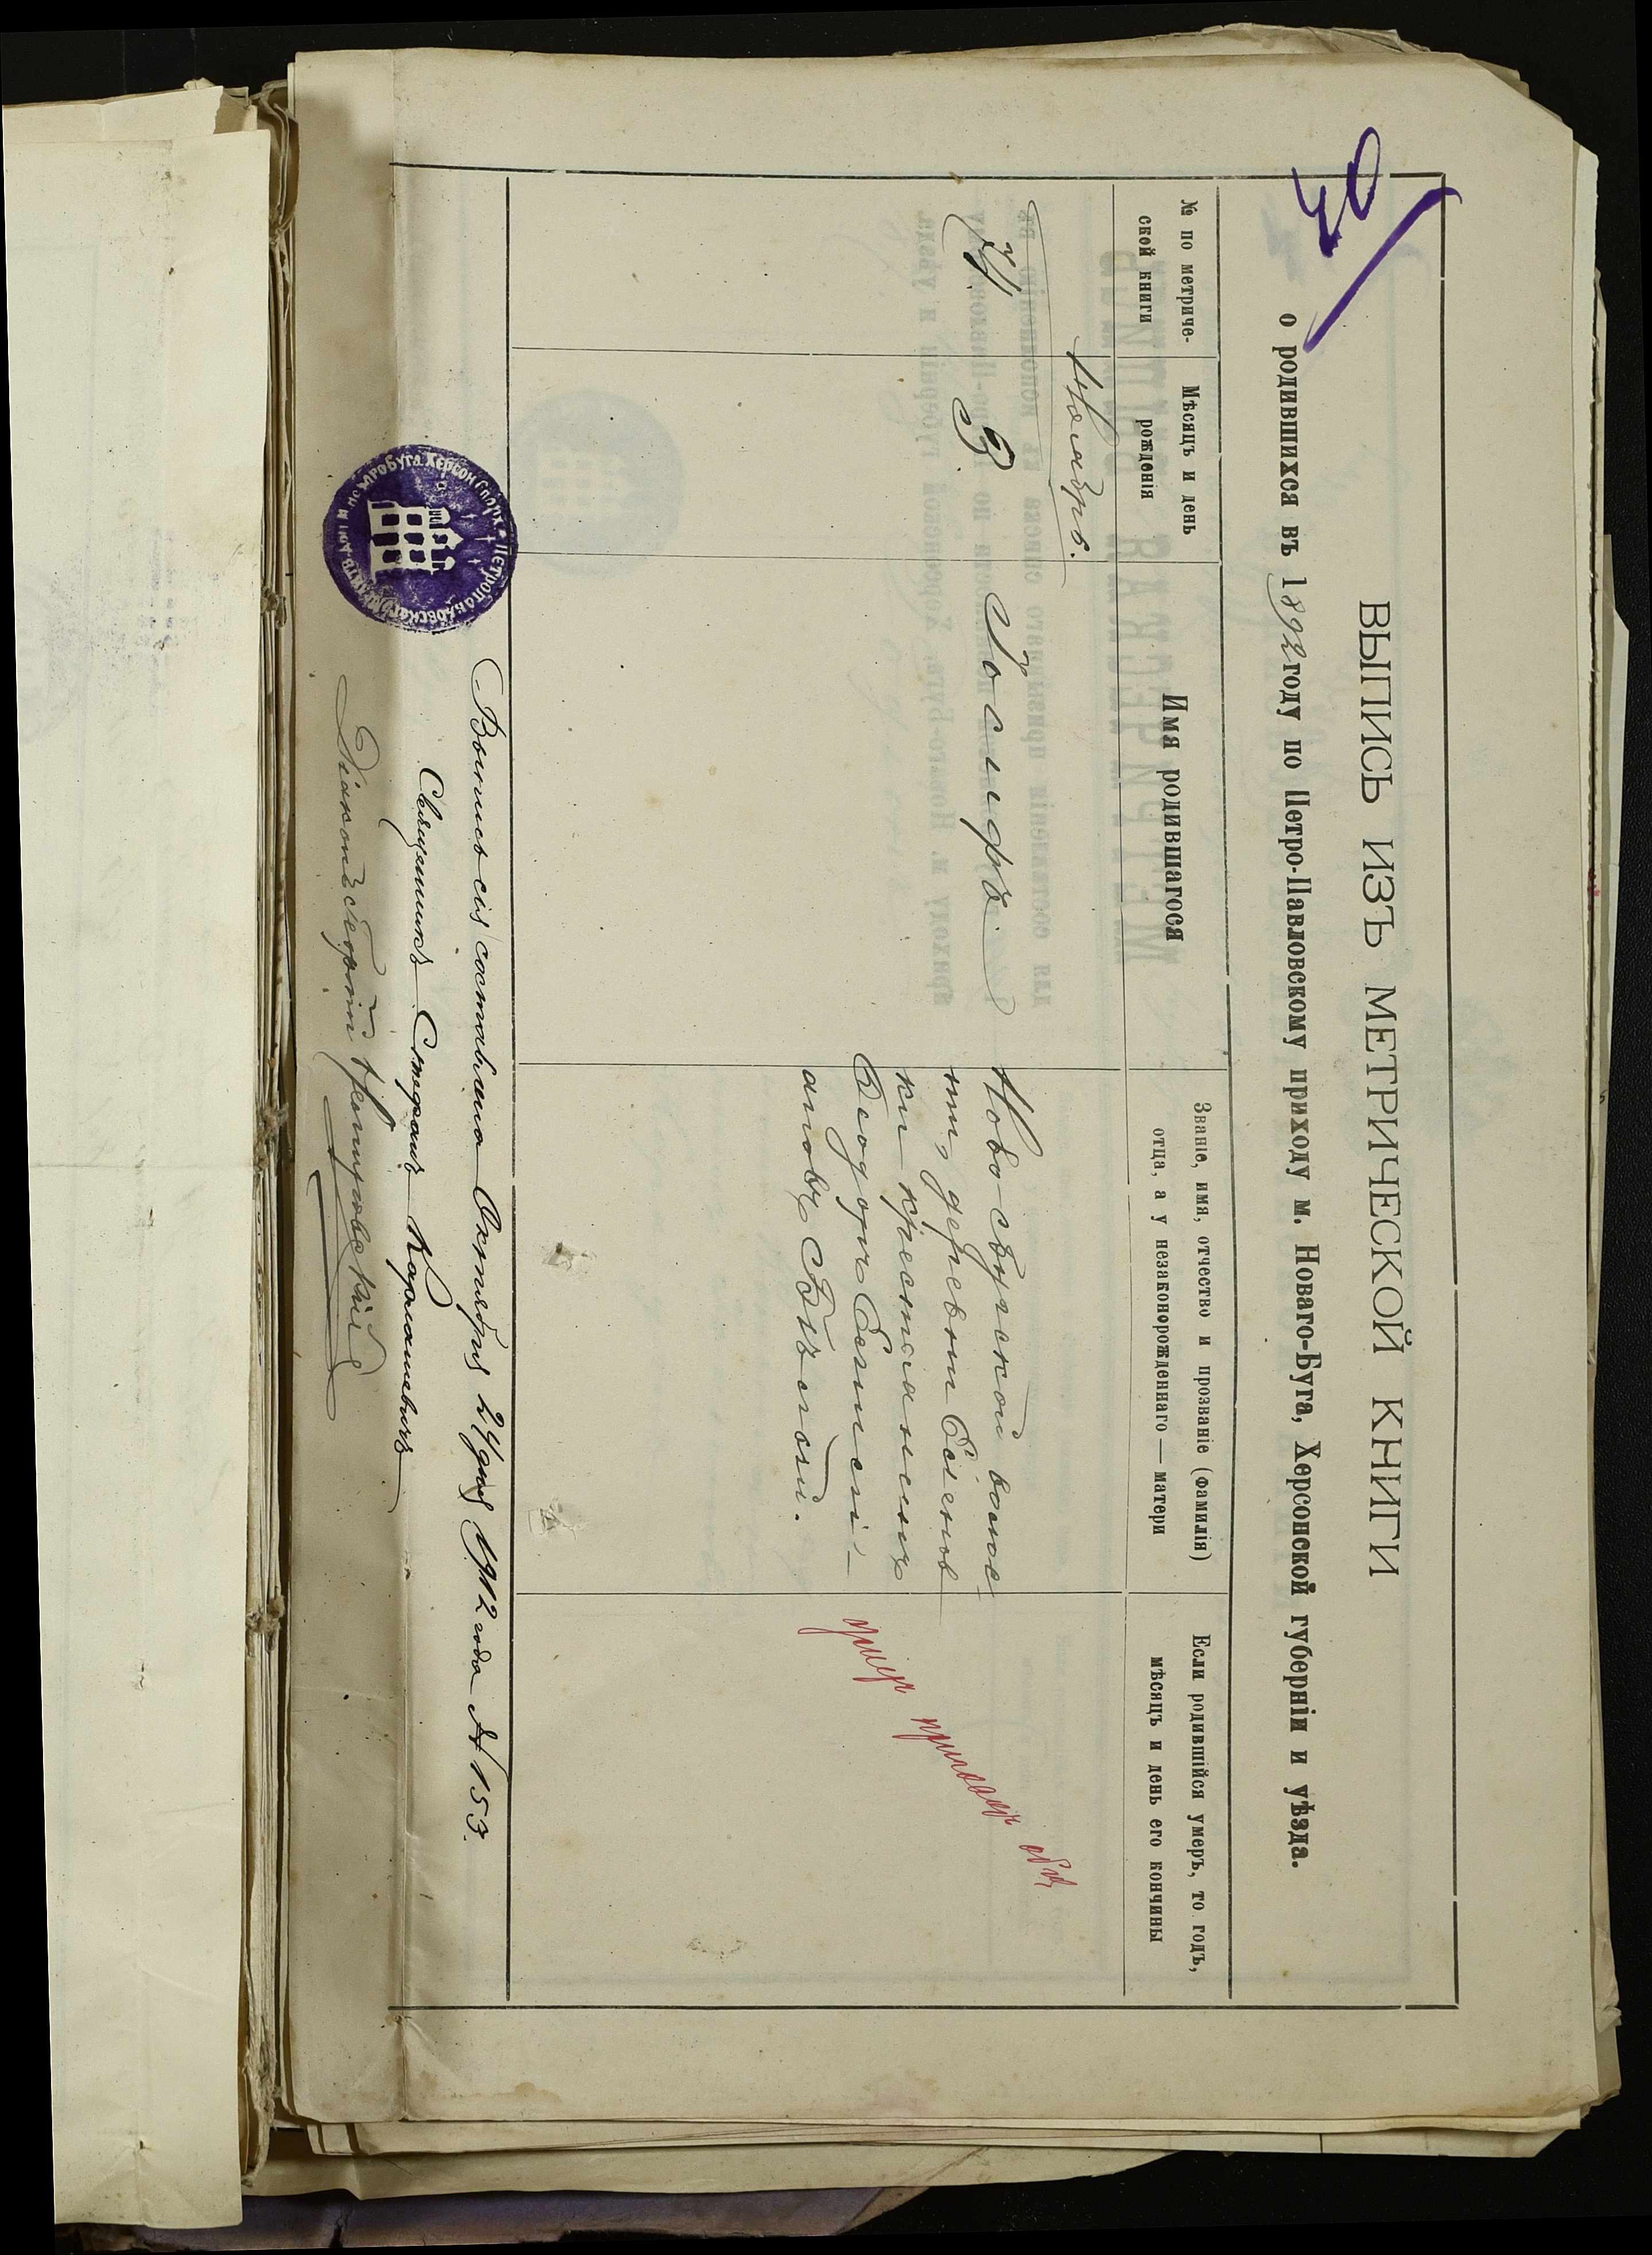 ВЫПИСЬ ИЗЪ МЕТРИЧЕСКОЙ КНИГИ
о родившихся въ 1892 году по Петро-Павловскому приходу м. Новаго-Буга, Херсонской губерніи и уѣзда.
№ по метриче-
ской книги
Мѣсяцъ и день
рожденія
Имя родившагося
Званіе, имя, отчество и прозваніе (фамилія)
отца, а у незаконорожденнаго — матери
Если родившійся умеръ, то годъ,
мѣсяцъ и день его кончины
Ноябрь.
3
Іосифъ
Ново-Бугской волос
ти, деревни
ки крестьянинъ
Ѳеодоръ
Выпись сія составлена Октября 24 дня 1912 года № 153.
Священникъ Стефанъ
Діаконъ Георгій
умеръ приговоръ общ